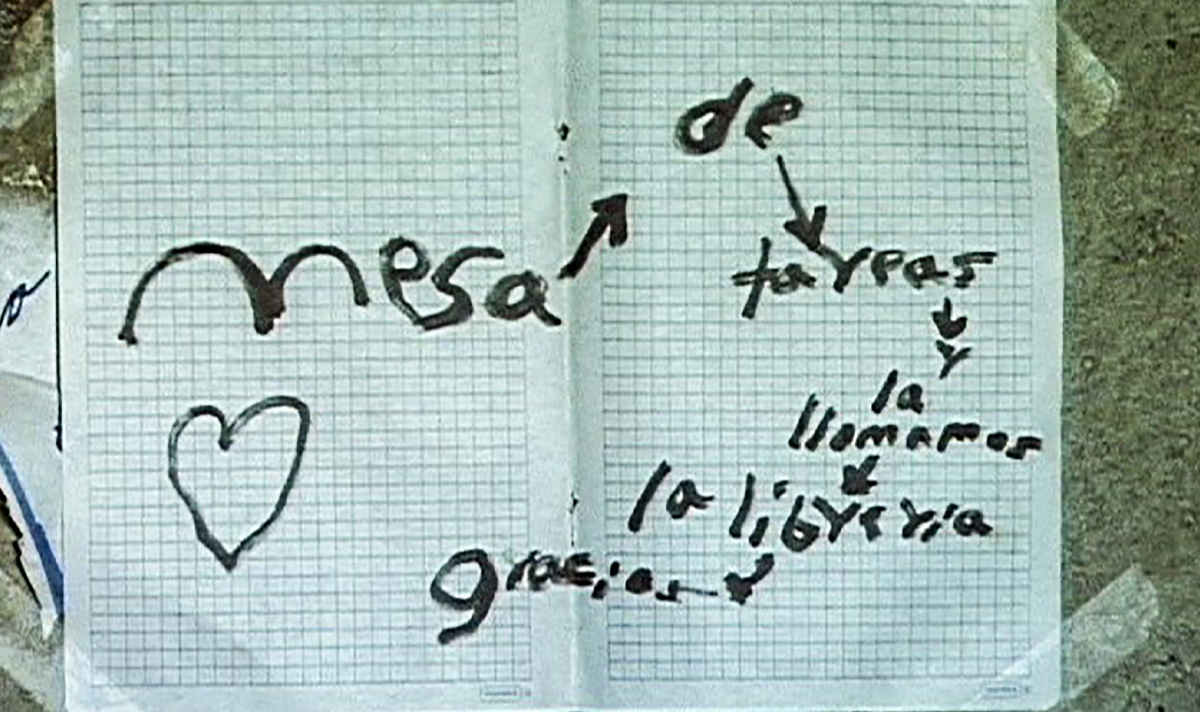 mesa
de
tareas
y
la
llamamos
la libreria
gracias